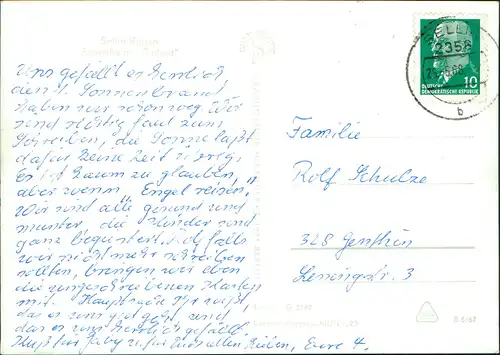 Sellin Rügen
SELLIN
2356
10
DEUTSCHE
DEMOKRATISCHE REPUBLIK
b
Uns gefällt es herrlich,
den 1. Sonnenbrand
haben wir schon weg. Wir
sind richtig faul zum
Schreiben, die Sonne läßt
dafür keine Zeit
Es ist kaum zu glauben,
aber wenn „Engel reisen"
Wir sind alle gesund und
munter, die Kinder sind
ganz begeistert. Falls
wir nicht mehr schreiben
sollten, bringen wir eben
die angeschriebenen Karten
mit. Hauptsache Ihr wißt,
daß es uns gut geht und
daß es uns herrlich gefällt.
Familie
Rolf Schulze
328 Genthin
Leningr. 3